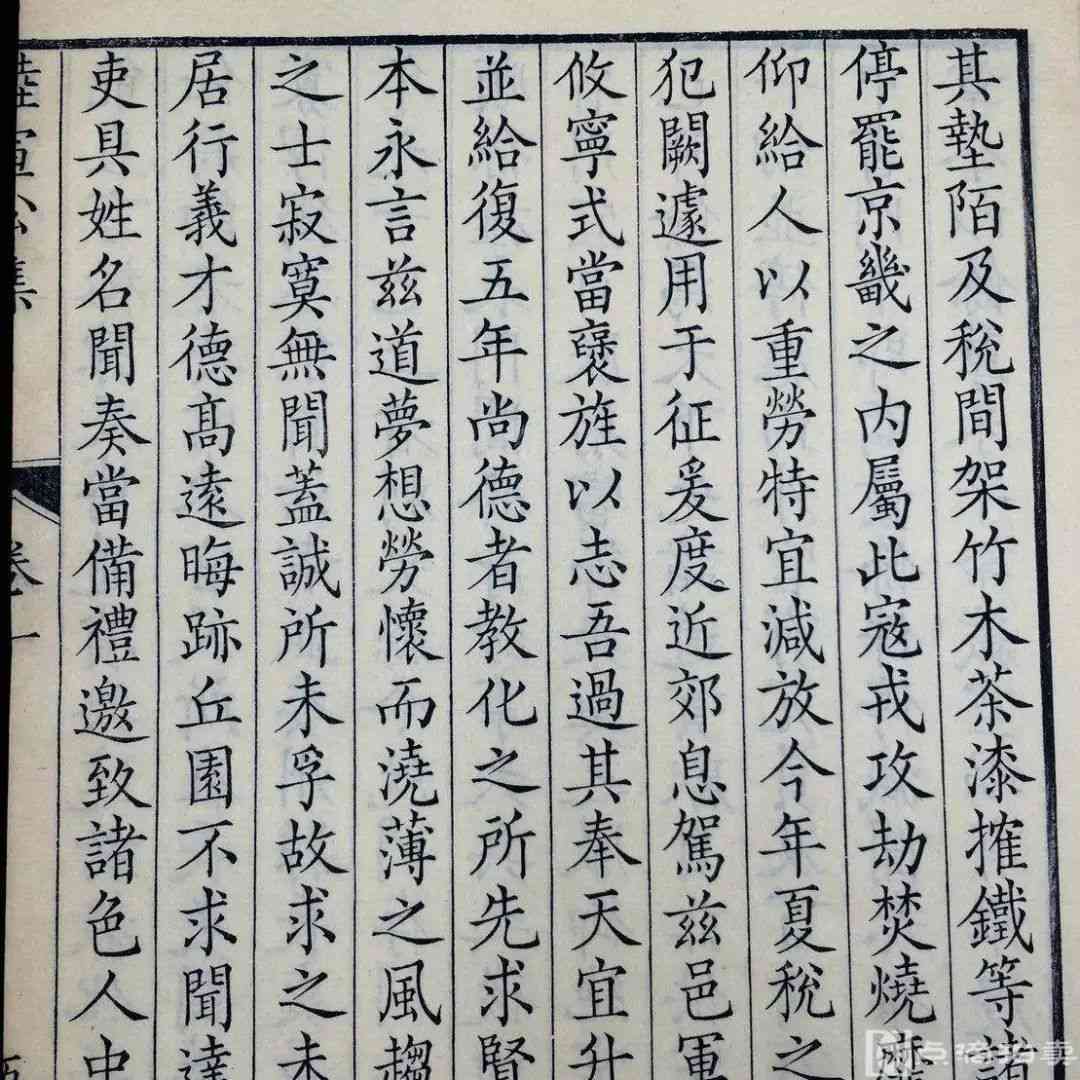 其墊陌及稅間架竹木茶漆搉鐵等諸
停罷京畿之內屬此寇戎攻劫焚燒
仰給人以重勞特宜減放今年夏稅之
犯闕遽用于征爰度近郊息駕茲邑軍
攸寧式當襃旌以志吾過其奉天宜升
並給復五年尚德者教化之所先求賢
本永言茲道夢想勞懷而澆薄之風趨
之士寂寞無聞蓋誠所未孚故求之未
居行義才德高遠晦跡丘園不求聞達
吏具姓名聞奏當備禮邀致諸色人中
陸宣公集
卷一